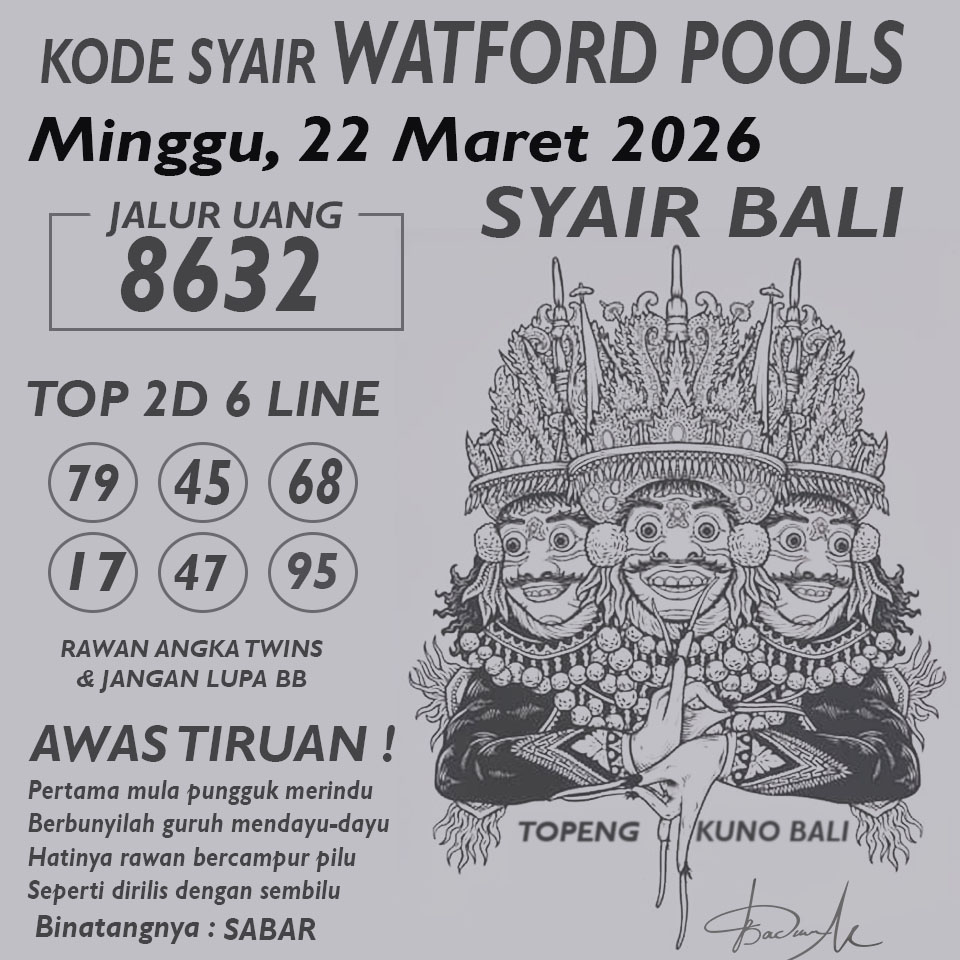 KODE SYAIR WATFORD POOLS
Minggu, 22 Maret 2026
SYAIR BALI
JALUR UANG
8632
TOP 2D 6 LINE
79 45 68
17 47 95
RAWAN ANGKA TWINS
& JANGAN LUPA BB
AWAS TIRUAN !
Pertama mula pungguk merindu
Berbunyilah guruh mendayu-dayu
Hatinya rawan bercampur pilu
Seperti dirilis dengan sembilu
Binatangnya : SABAR
TOPENG KUNO BALI